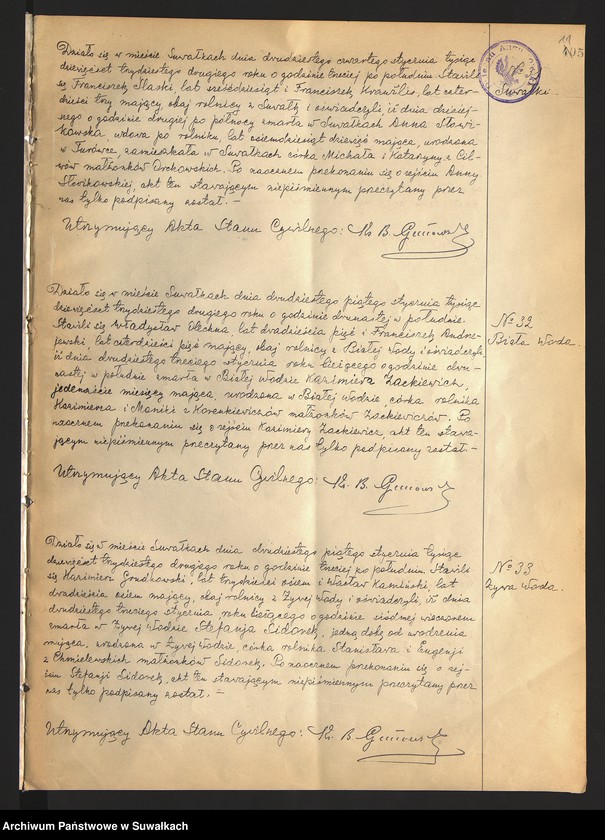 11
105
Suwałki.
Działo się w mieście Suwałkach dnia dwudziestego czwartego stycznia tysiąc
dziewięćset trzydziestego drugiego roku o godzinie trzeciej po południu. Stawili
się Franciszek Slaski, lat sześćdziesiąt i Franciszek lat czter-
dzieści trzy mający, obaj rolnicy z Suwałk i oświadczyli iż dnia dzisiej-
szego o godzinie drugiej po północy zmarła w Suwałkach Anna Słowi-
kowska wdowa po rolniku, lat osiemdziesiąt dziewięć mająca, urodzona
w zamieszkała w Suwałkach córka Michała i Katarzyny z
małżonków Orchowskich. Po naocznem przekonaniu się o zejściu Anny
Słowikowskiej, akt ten stawającym niepiśmiennym przeczytany przez
nas tylko podpisany został. —
Utrzymujący Akta Stanu Cywilnego: Ks. B.
Działo się w mieście Suwałkach dnia dwudziestego piątego stycznia tysiąc
dziewięćset trzydziestego drugiego roku o godzinie dwunastej w południe.
Stawili się Władysław Olechna, lat dwadzieścia pięć i Franciszek Andrze-
jewski lat czterdzieści pięć mający, obaj rolnicy z Białej Wody i oświadczyli,
iż dnia dwudziestego trzeciego stycznia roku bieżącego o godzinie dwu-
nastej w południe zmarła w Białej Wodzie Kazimiera Zackiewicz,
jedenaście miesięcy mająca, urodzona w Białej Wodzie córka rolnika
Kazimierza i z Korenkiewiczów małżonków Zackiewiczów. Po
naocznem przekonaniu się o zejściu Kazimiery Zackiewicz, akt ten stawa-
jącym niepiśmiennym przeczytany przez nas tylko podpisany został. —
Utrzymujący Akta Stanu Cywilnego: Ks. B.
№ 32
Biała Woda.
Działo się w mieście Suwałkach dnia dwudziestego piątego stycznia tysiąc
dziewięćset trzydziestego drugiego roku o godzinie trzeciej po południu. Stawili
się Kazimierz Grudkowski, lat trzydzieści osiem i Wacław Kamiński, lat
dwadzieścia osiem mający, obaj rolnicy z Żywej Wody i oświadczyli, iż dnia
dwudziestego trzeciego stycznia roku bieżącego o godzinie siódmej wieczorem
zmarła w Żywej Wodzie Stefanja Sidorek, jedną dobę od urodzenia
mająca, urodzona w Żywej Wodzie, córka rolnika Stanisława i Eugenji
z Chmielewskich małżonków Sidorek. Po naocznem przekonaniu się o zej-
ściu Stefanji Sidorek, akt ten stawającym niepiśmiennym przeczytany przez
nas tylko podpisany został. —
Utrzymujący Akta Stanu Cywilnego: Ks. B.
№ 33
Żywa Woda.
Archiwum Państwowe w Suwałkach